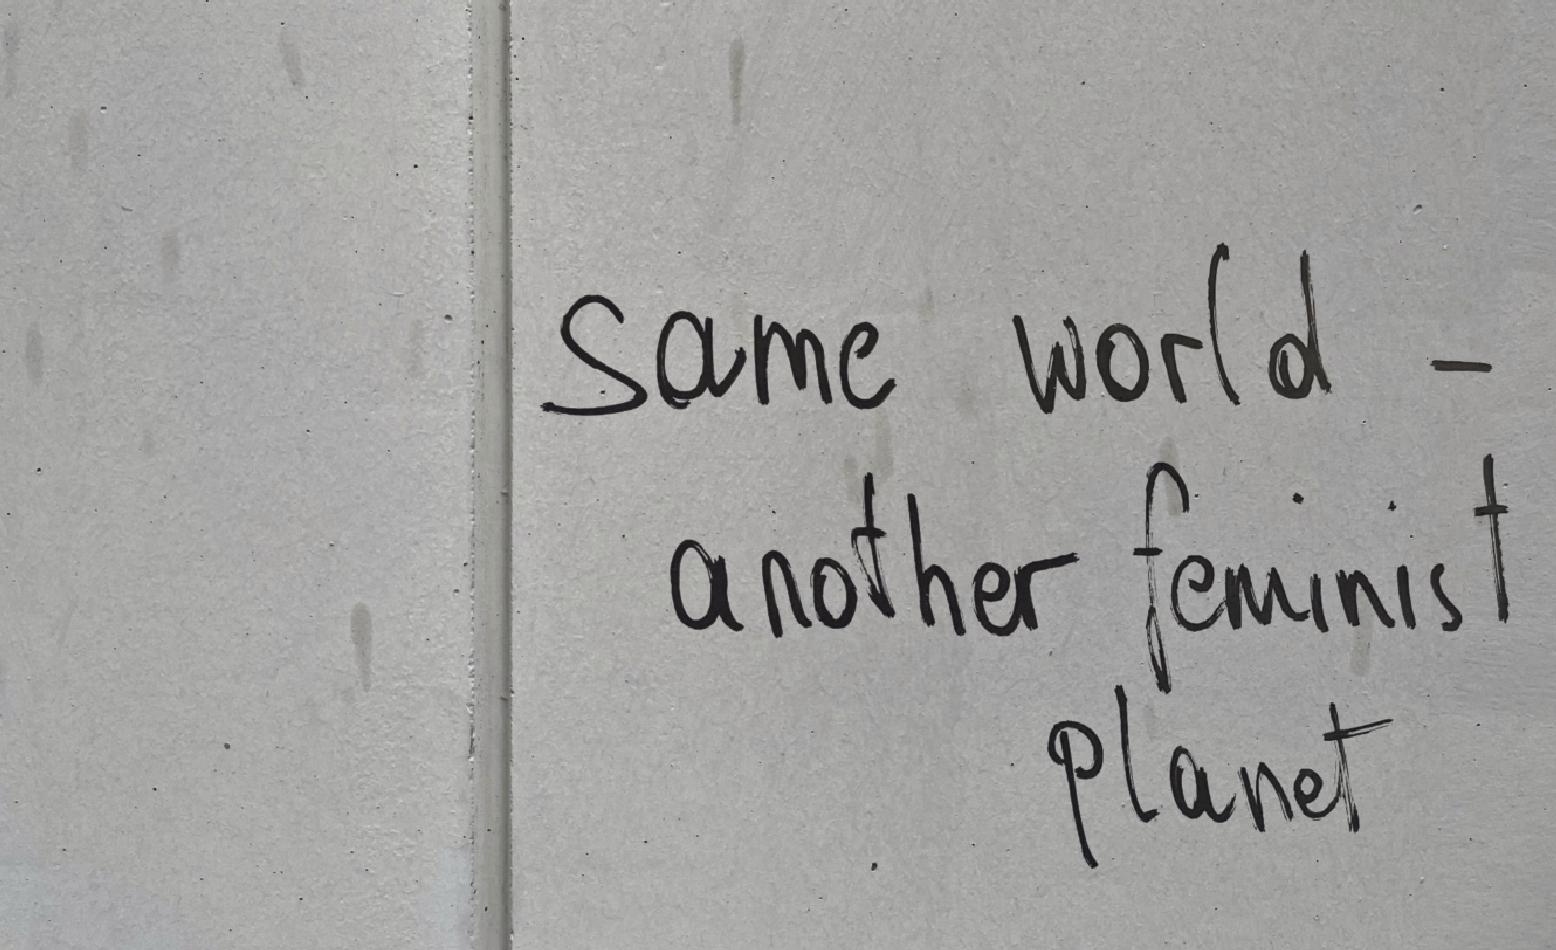 Same world -
another feminist
planet